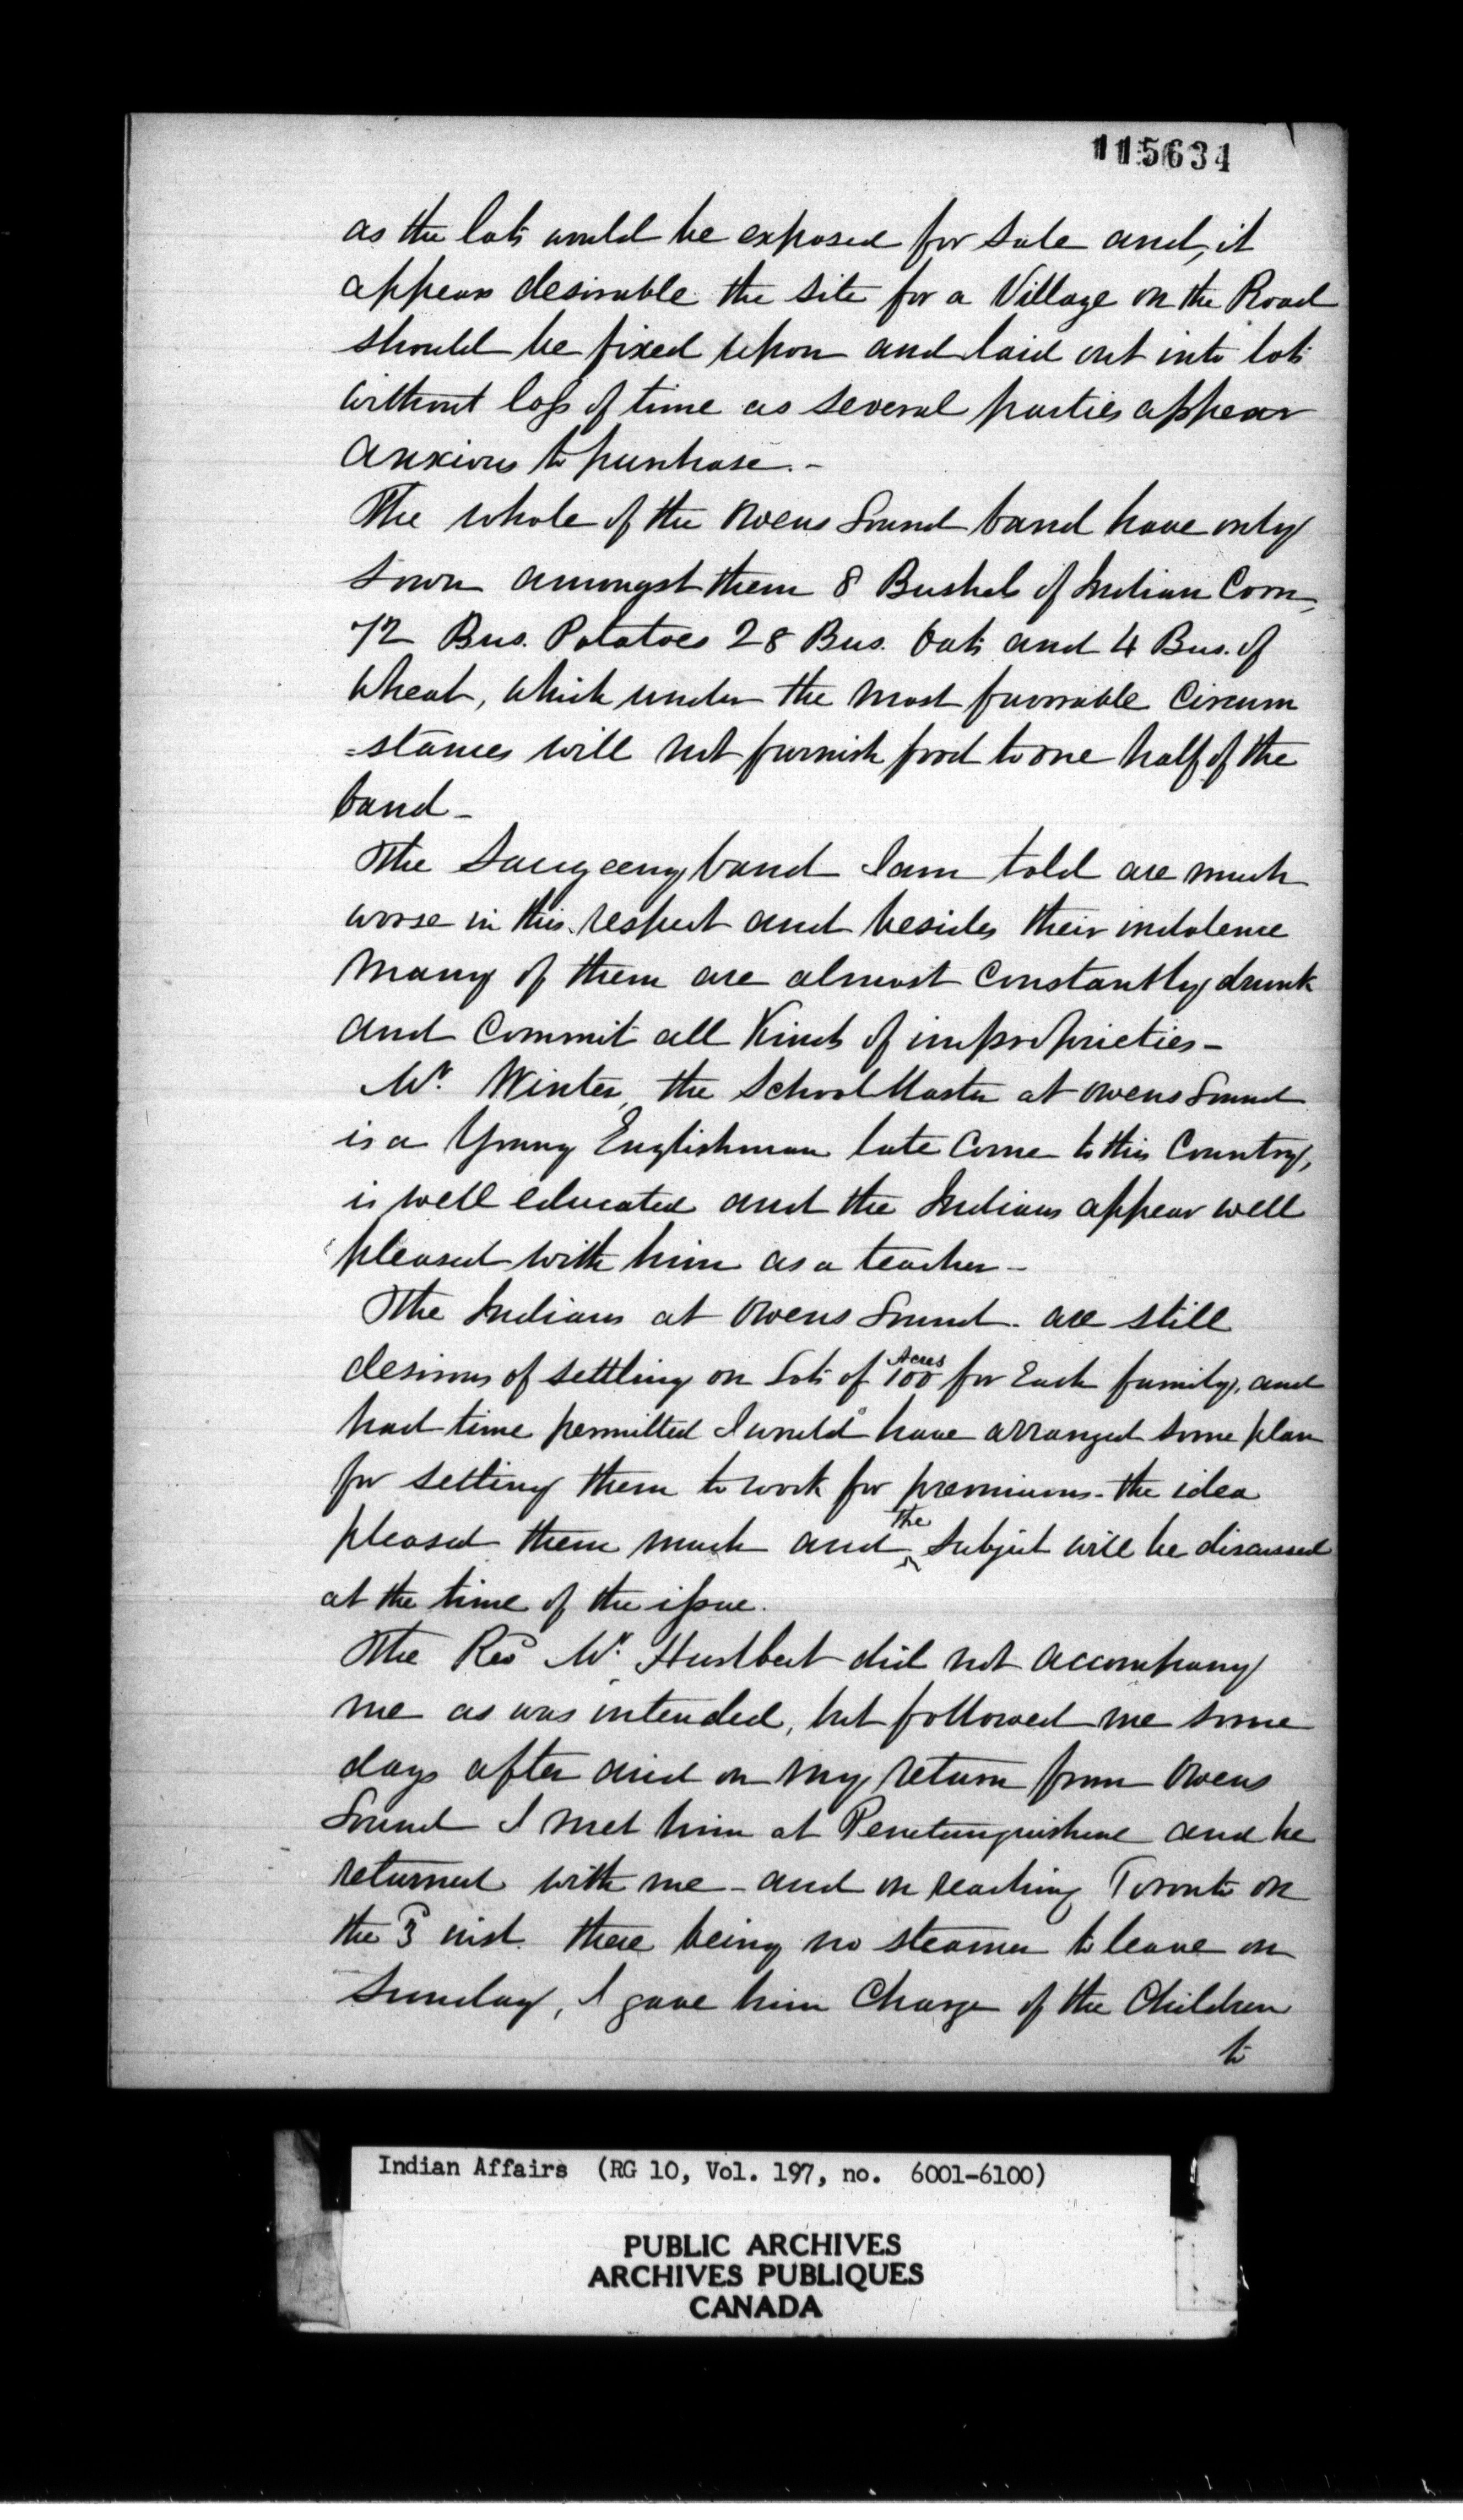 115634
as the lots would be exposed for sale and, it
appears desirable the site for a Village on the Road
should be fixed upon and laid out into lots
without loss of time as several parties appear
anxious to purchase.-
The whole of the Owens Sound band have only
sown amongst them 8 Bushels of Indian Corn,
72 Bus. Potatoes 28 Bus. Oats and 4 Bus. of
Wheat, which under the most favorable Circum
=stances will not furnish food to one half of the
band-
The Saugeeng band I am told are much
worse in this respect and besides their indolence
Many of them are almost Constantly drunk
and Commit all Kinds of improprieties-
Mr. Winter, the School Master at Owens Sound
is a Young Englishman late Come to this Country,
is well educated and the Indians appear well
pleased with him as a teacher-
The Indians at Owens Sound. are still
desirous of settling on Lots of 100 Acres for Each family, and
had time permitted I would have arranged some plan
for setting them to work for premiums- the idea
pleased them much and the subject will be discussed
at the time of the issue.
The Revd Mr. Hurlburt did not accompany
me as was intended, but followed me some
days after and on my return from Owens
Sound I met him at Penetanguishene and he
returned with me - and on reaching Toronto on
the 3 inst. there being no steamer to leave on
Sunday, I gave him Charge of the Children
to
Indian Affairs (RG 10, Vol. 197, no. 6001-6100)
PUBLIC ARCHIVES
ARCHIVES PUBLIQUES
CANADA